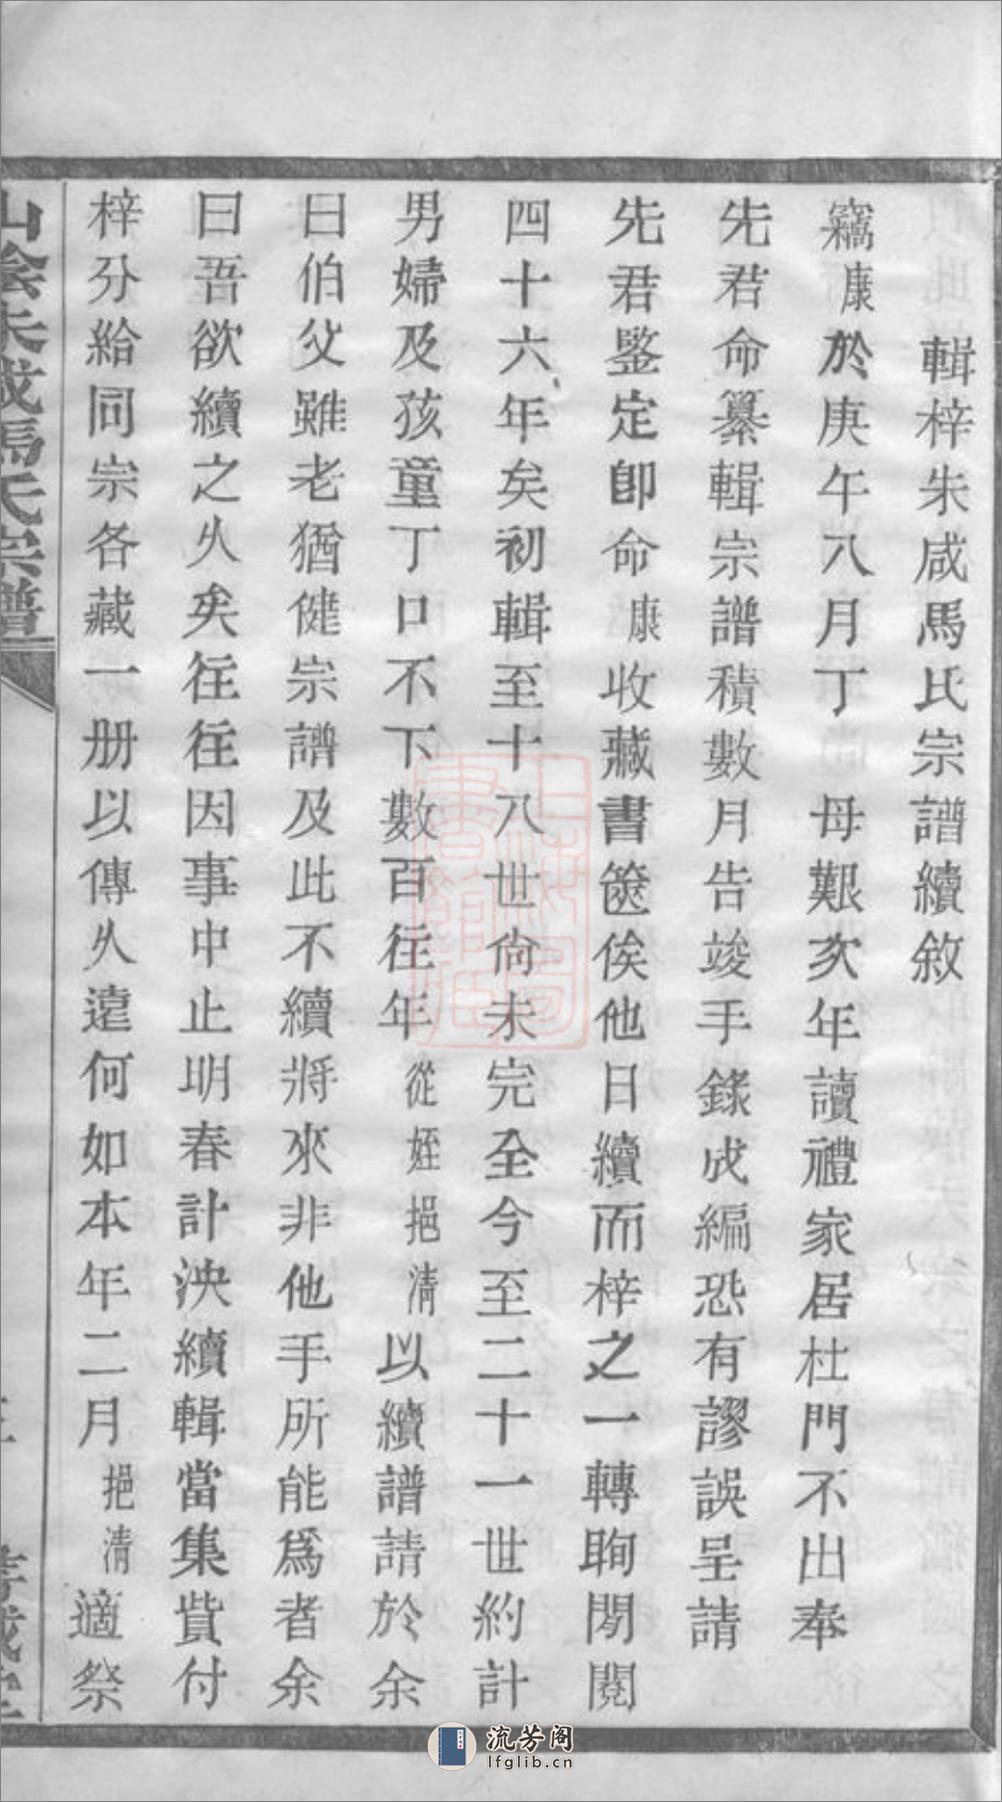 輯梓朱咸馬氏宗譜續敘
竊康於庚午八月丁 母艱次年讀禮家居杜門不出奉
先君命纂輯宗譜積數月告竣手錄成編恐有謬誤呈請
先君鑒定卽命康收藏書篋俟他日續而梓之一轉眴閒閱
四十六年矣初輯至十八世尙未完全今至二十一世約計
男婦及孩童丁口不下數百往年從姪挹清以續譜請於余
曰伯父雖老猶健宗譜及此不續將來非他手所能爲者余
曰吾欲續之久矣往往因事中止明春計決續輯當集貲付
梓分給同宗各藏一册以傳久遠何如本年二月挹清適祭
山陰朱咸馬氏宗譜
流芳阁
lfglib.cn